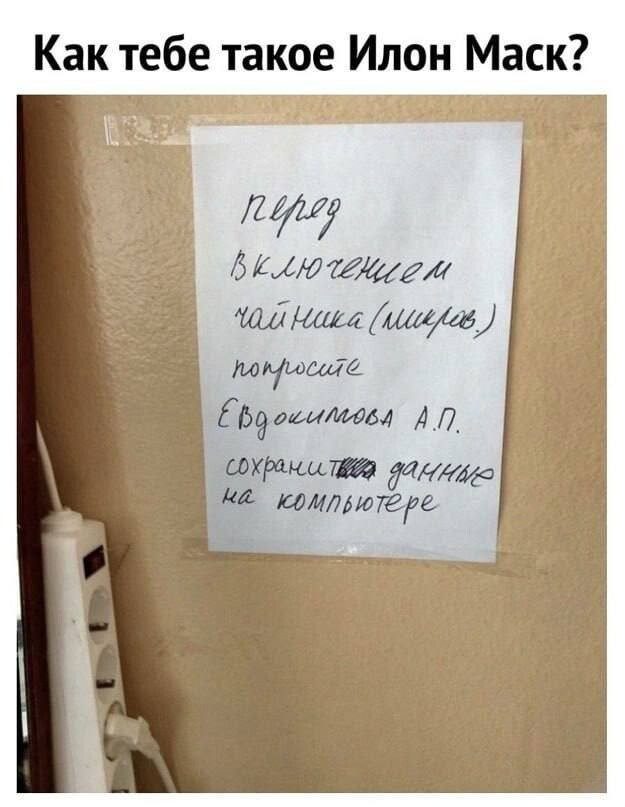 Как тебе такое Илон Маск?
перед
включением
чайника (микров.)
попросите
Евдокимова А.П.
сохранить данные
на компьютере